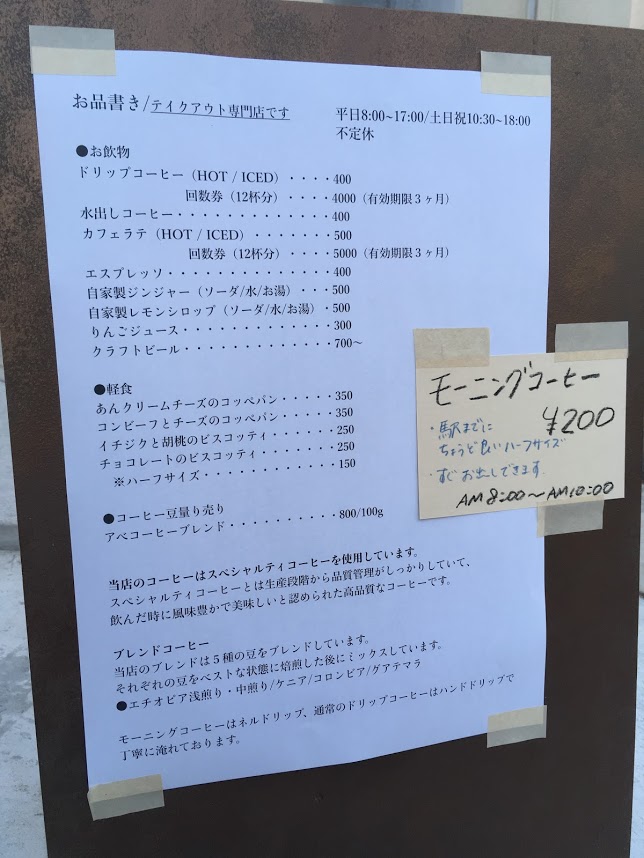 お品書き/テイクアウト専門店です
平日8:00~17:00/土日祝10:30~18:00
不定休
●お飲物
ドリップコーヒー（HOT / ICED）・・・・400
回数券（12杯分）・・・・4000（有効期限３ヶ月）
水出しコーヒー・・・・・・・・・・・・・400
カフェラテ（HOT / ICED）・・・・・・・500
回数券（12杯分）・・・・5000（有効期限３ヶ月）
エスプレッソ・・・・・・・・・・・・・・400
自家製ジンジャー（ソーダ/水/お湯）・・・500
自家製レモンシロップ（ソーダ/水/お湯）・500
りんごジュース・・・・・・・・・・・・・300
クラフトビール・・・・・・・・・・・・・700～
●軽食
あんクリームチーズのコッペパン・・・・・350
コンビーフとチーズのコッペパン・・・・・350
イチジクと胡桃のビスコッティ・・・・・・250
チョコレートのビスコッティ・・・・・・・250
※ハーフサイズ・・・・・・・・・・・150
●コーヒー豆量り売り
アベコーヒーブレンド・・・・・・・・・・800/100g
当店のコーヒーはスペシャルティコーヒーを使用しています。
スペシャルティコーヒーとは生産段階から品質管理がしっかりしていて、
飲んだ時に風味豊かで美味しいと認められた高品質なコーヒーです。
ブレンドコーヒー
当店のブレンドは５種の豆をブレンドしています。
それぞれの豆をベストな状態に焙煎した後にミックスしています。
●エチオピア浅煎り・中煎り/ケニア/コロンビア/グアテマラ
モーニングコーヒーはネルドリップ、通常のドリップコーヒーはハンドドリップで
丁寧に淹れております。
モーニングコーヒー
¥200
・駅までに
ちょうど良いハーフサイズ
・すぐお出しできます
AM8:00～AM10:00